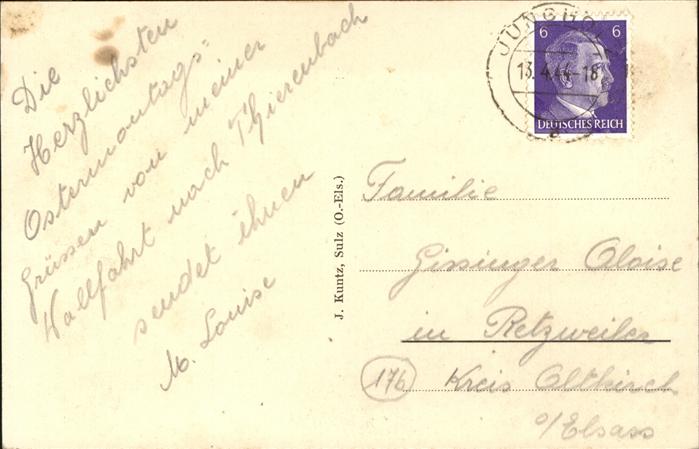 Die
Herzlichsten
Ostermontags=
Grüssen von meiner
Wallfahrt nach Thierenbach
sendet ihnen
M. Louise
J. Kuntz, Sulz (O.-Els.)
JUNGHO
13.4.44-18
a
6 6
DEUTSCHES REICH
Familie
Gissinger Aloise
in Retzweiler
176 Kreis Altkirch
o/Elsass